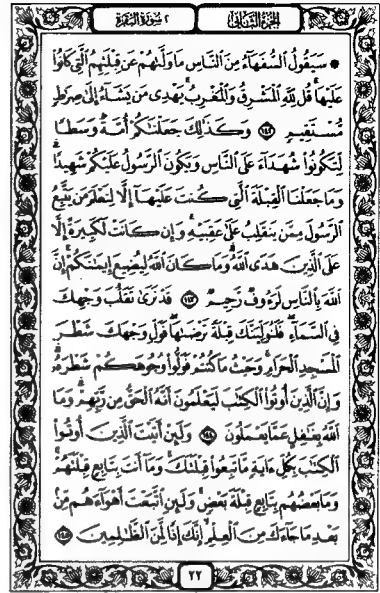 الجزء الثانى
٢ سورة البقرة
۞ سَيَقُولُ ٱلسُّفَهَآءُ مِنَ ٱلنَّاسِ مَا وَلَّىٰهُمْ عَن قِبْلَتِهِمُ ٱلَّتِى كَانُوا۟
عَلَيْهَا ۚ قُل لِّلَّهِ ٱلْمَشْرِقُ وَٱلْمَغْرِبُ ۚ يَهْدِى مَن يَشَآءُ إِلَىٰ صِرَٰطٍ
مُّسْتَقِيمٍ ١٤٢ وَكَذَٰلِكَ جَعَلْنَٰكُمْ أُمَّةً وَسَطًا
لِّتَكُونُوا۟ شُهَدَآءَ عَلَى ٱلنَّاسِ وَيَكُونَ ٱلرَّسُولُ عَلَيْكُمْ شَهِيدًا ۗ
وَمَا جَعَلْنَا ٱلْقِبْلَةَ ٱلَّتِى كُنتَ عَلَيْهَآ إِلَّا لِنَعْلَمَ مَن يَتَّبِعُ
ٱلرَّسُولَ مِمَّن يَنقَلِبُ عَلَىٰ عَقِبَيْهِ ۚ وَإِن كَانَتْ لَكَبِيرَةً إِلَّا
عَلَى ٱلَّذِينَ هَدَى ٱللَّهُ ۗ وَمَا كَانَ ٱللَّهُ لِيُضِيعَ إِيمَٰنَكُمْ ۚ إِنَّ
ٱللَّهَ بِٱلنَّاسِ لَرَءُوفٌ رَّحِيمٌ ١٤٣ قَدْ نَرَىٰ تَقَلُّبَ وَجْهِكَ
فِى ٱلسَّمَآءِ ۖ فَلَنُوَلِّيَنَّكَ قِبْلَةً تَرْضَىٰهَا ۚ فَوَلِّ وَجْهَكَ شَطْرَ
ٱلْمَسْجِدِ ٱلْحَرَامِ ۚ وَحَيْثُ مَا كُنتُمْ فَوَلُّوا۟ وُجُوهَكُمْ شَطْرَهُۥ ۗ
وَإِنَّ ٱلَّذِينَ أُوتُوا۟ ٱلْكِتَٰبَ لَيَعْلَمُونَ أَنَّهُ ٱلْحَقُّ مِن رَّبِّهِمْ ۗ وَمَا
ٱللَّهُ بِغَٰفِلٍ عَمَّا يَعْمَلُونَ ١٤٤ وَلَئِنْ أَتَيْتَ ٱلَّذِينَ أُوتُوا۟
ٱلْكِتَٰبَ بِكُلِّ ءَايَةٍ مَّا تَبِعُوا۟ قِبْلَتَكَ ۚ وَمَآ أَنتَ بِتَابِعٍ قِبْلَتَهُمْ ۚ
وَمَا بَعْضُهُم بِتَابِعٍ قِبْلَةَ بَعْضٍ ۚ وَلَئِنِ ٱتَّبَعْتَ أَهْوَآءَهُم مِّنۢ
بَعْدِ مَا جَآءَكَ مِنَ ٱلْعِلْمِ ۙ إِنَّكَ إِذًا لَّمِنَ ٱلظَّٰلِمِينَ ١٤٥
٢٢